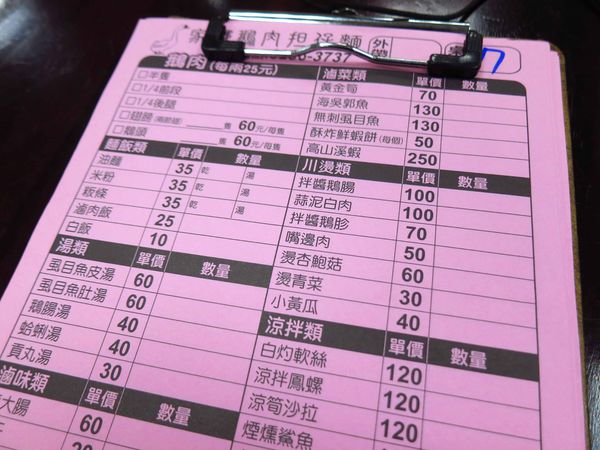 鵝肉担仔麵
外帶
7
-3737
鵝肉 (每兩25元)
□半隻
□1/4前段
□1/4後腿
□翅膀(兩節翅) 隻 60元/每隻
□鵝頭 隻 60元/每隻
麵飯類 單價 數量
油麵 35 乾 湯
米粉 35 乾 湯
粄條 35 乾 湯
滷肉飯 25
白飯 10
湯類 單價 數量
虱目魚皮湯 60
虱目魚肚湯 60
鵝腸湯 40
蛤蜊湯 40
貢丸湯 30
滷味類 單價 數量
大腸 60
滷菜類 單價 數量
黃金筍 70
海吳郭魚 130
無刺虱目魚 130
酥炸鮮蝦餅(每個) 50
高山溪蝦 250
川燙類 單價 數量
拌醬鵝腸 100
蒜泥白肉 100
拌醬鵝胗 70
嘴邊肉 50
燙杏鮑菇 60
燙青菜 30
小黃瓜 40
涼拌類 單價 數量
白灼軟絲 120
涼拌鳳螺 120
涼筍沙拉 120
煙燻鯊魚